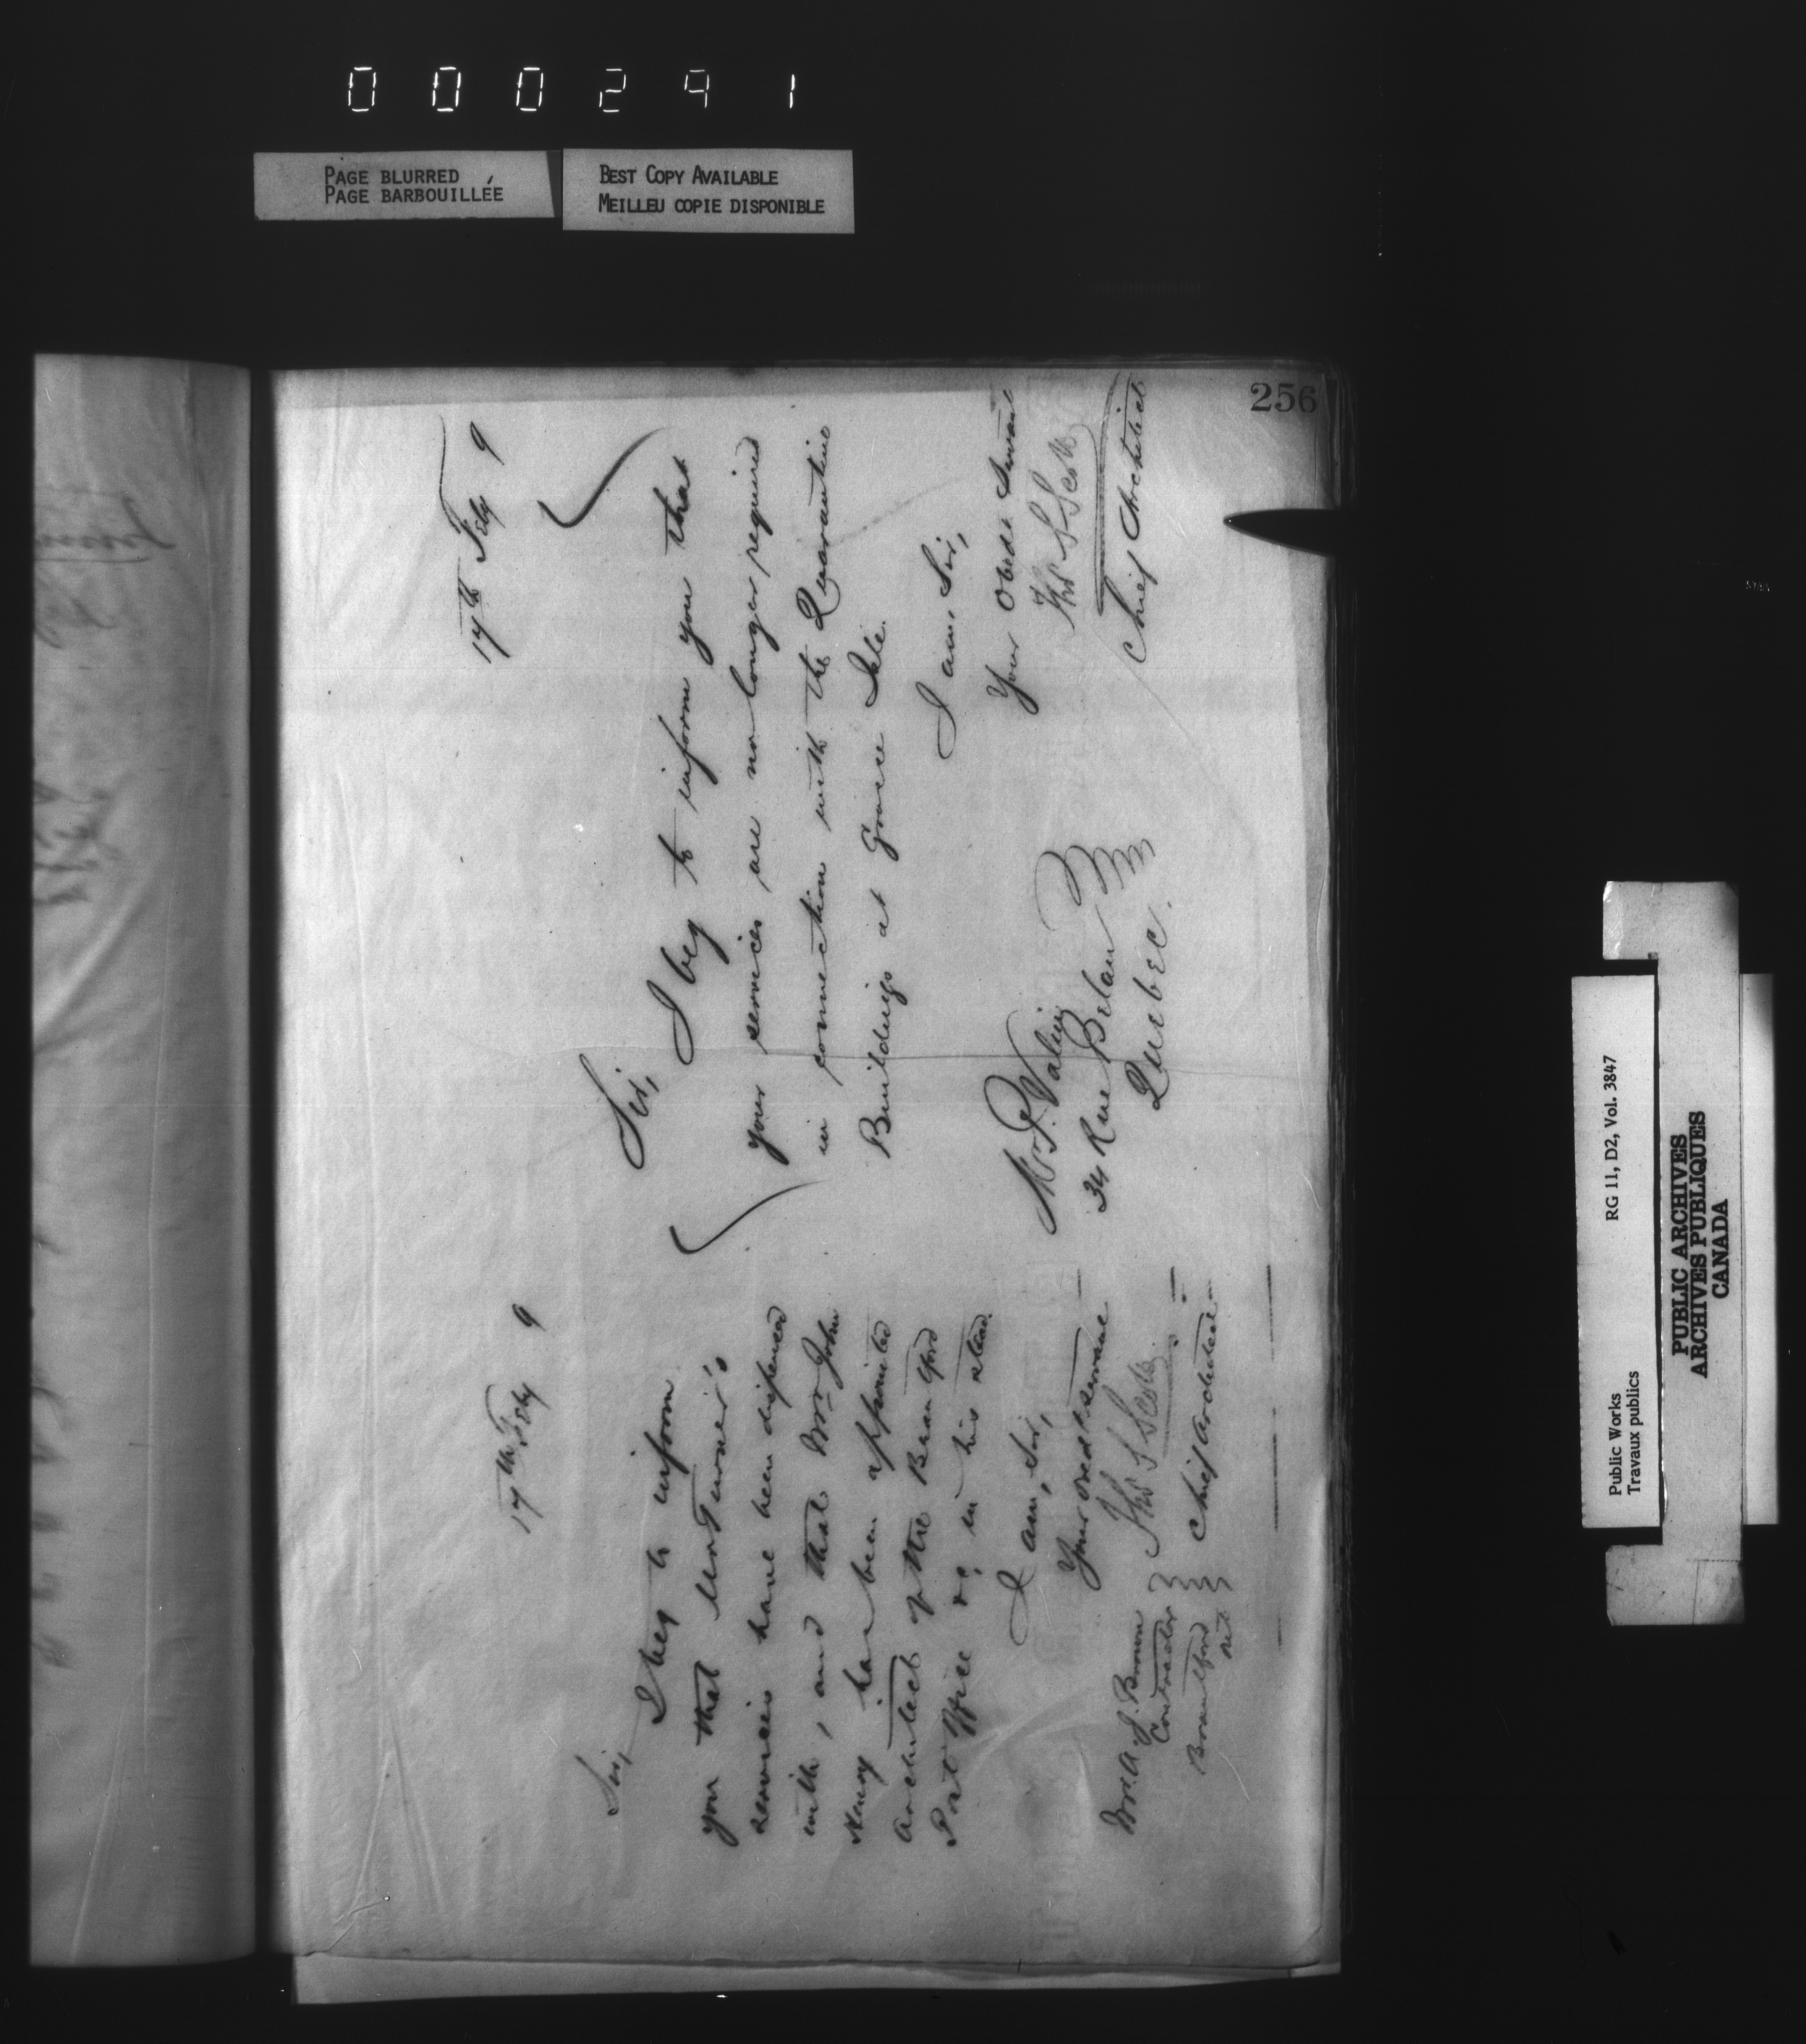 000291
PAGE BLURRED
PAGE BARBOUILLÉE
BEST COPY AVAILABLE
MEILLEU COPIE DISPONIBLE
256
17th Feby 9
Sir,
I beg to inform
you that Mr Turner's
services have been dispensed
with, and that Mr John
has been appointed
Architect of the Brantford
Post Office &c, in his stead.
I am, Sir,
Your obedt servant
Thos S Scott
Chief Architect
Mr. A. J. Brown
Contractor
Brantford
Ont
17th Feby 9
Sir,
I beg to inform you that
your services are no longer required
in connection with the Quarantine
Buildings at Grosse Isle.
I am, Sir,
Your Obedt Servant
Thos S Scott
Chief Architect
Mr P. Valin
34 Rue
Quebec.
Public Works
Travaux publics
RG 11, D2, Vol. 3847
PUBLIC ARCHIVES
ARCHIVES PUBLIQUES
CANADA